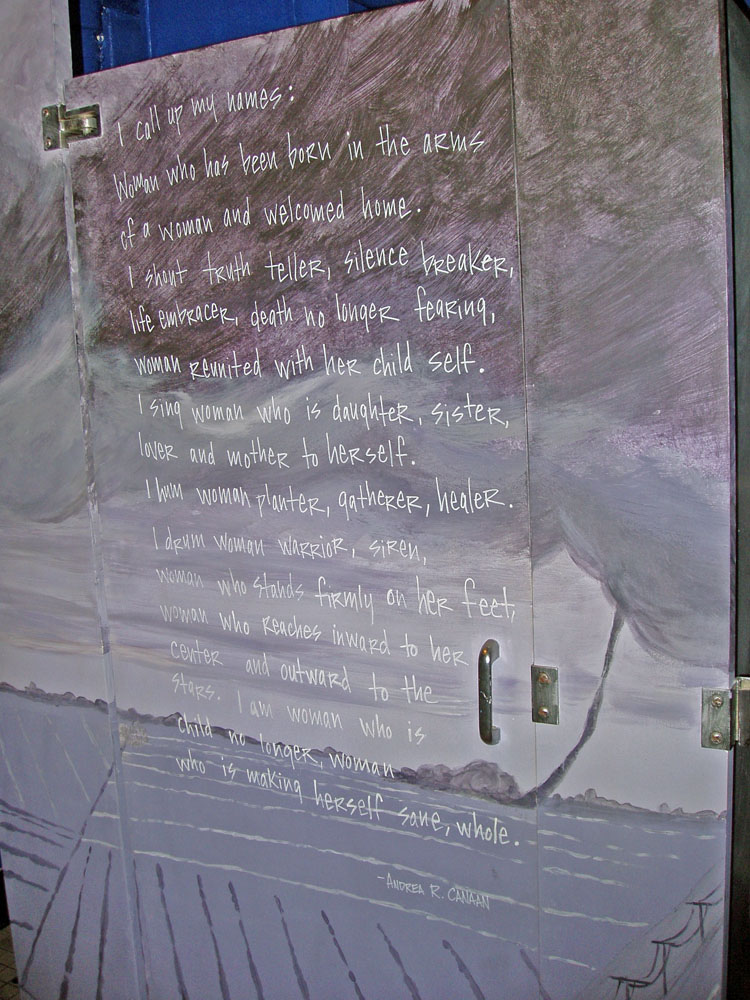 I call up my names:
Woman who has been born in the arms
of a woman and welcomed home.
I shout truth teller, silence breaker,
life embracer, death no longer fearing,
woman reunited with her child self.
I sing woman who is daughter, sister,
lover and mother to herself.
I hum woman planter, gatherer, healer.
I drum woman warrior, siren,
woman who stands firmly on her feet,
woman who reaches inward to her
center and outward to the
stars. I am woman who is
child no longer, woman
who is making herself sane, whole.
-Andrea R. Canaan